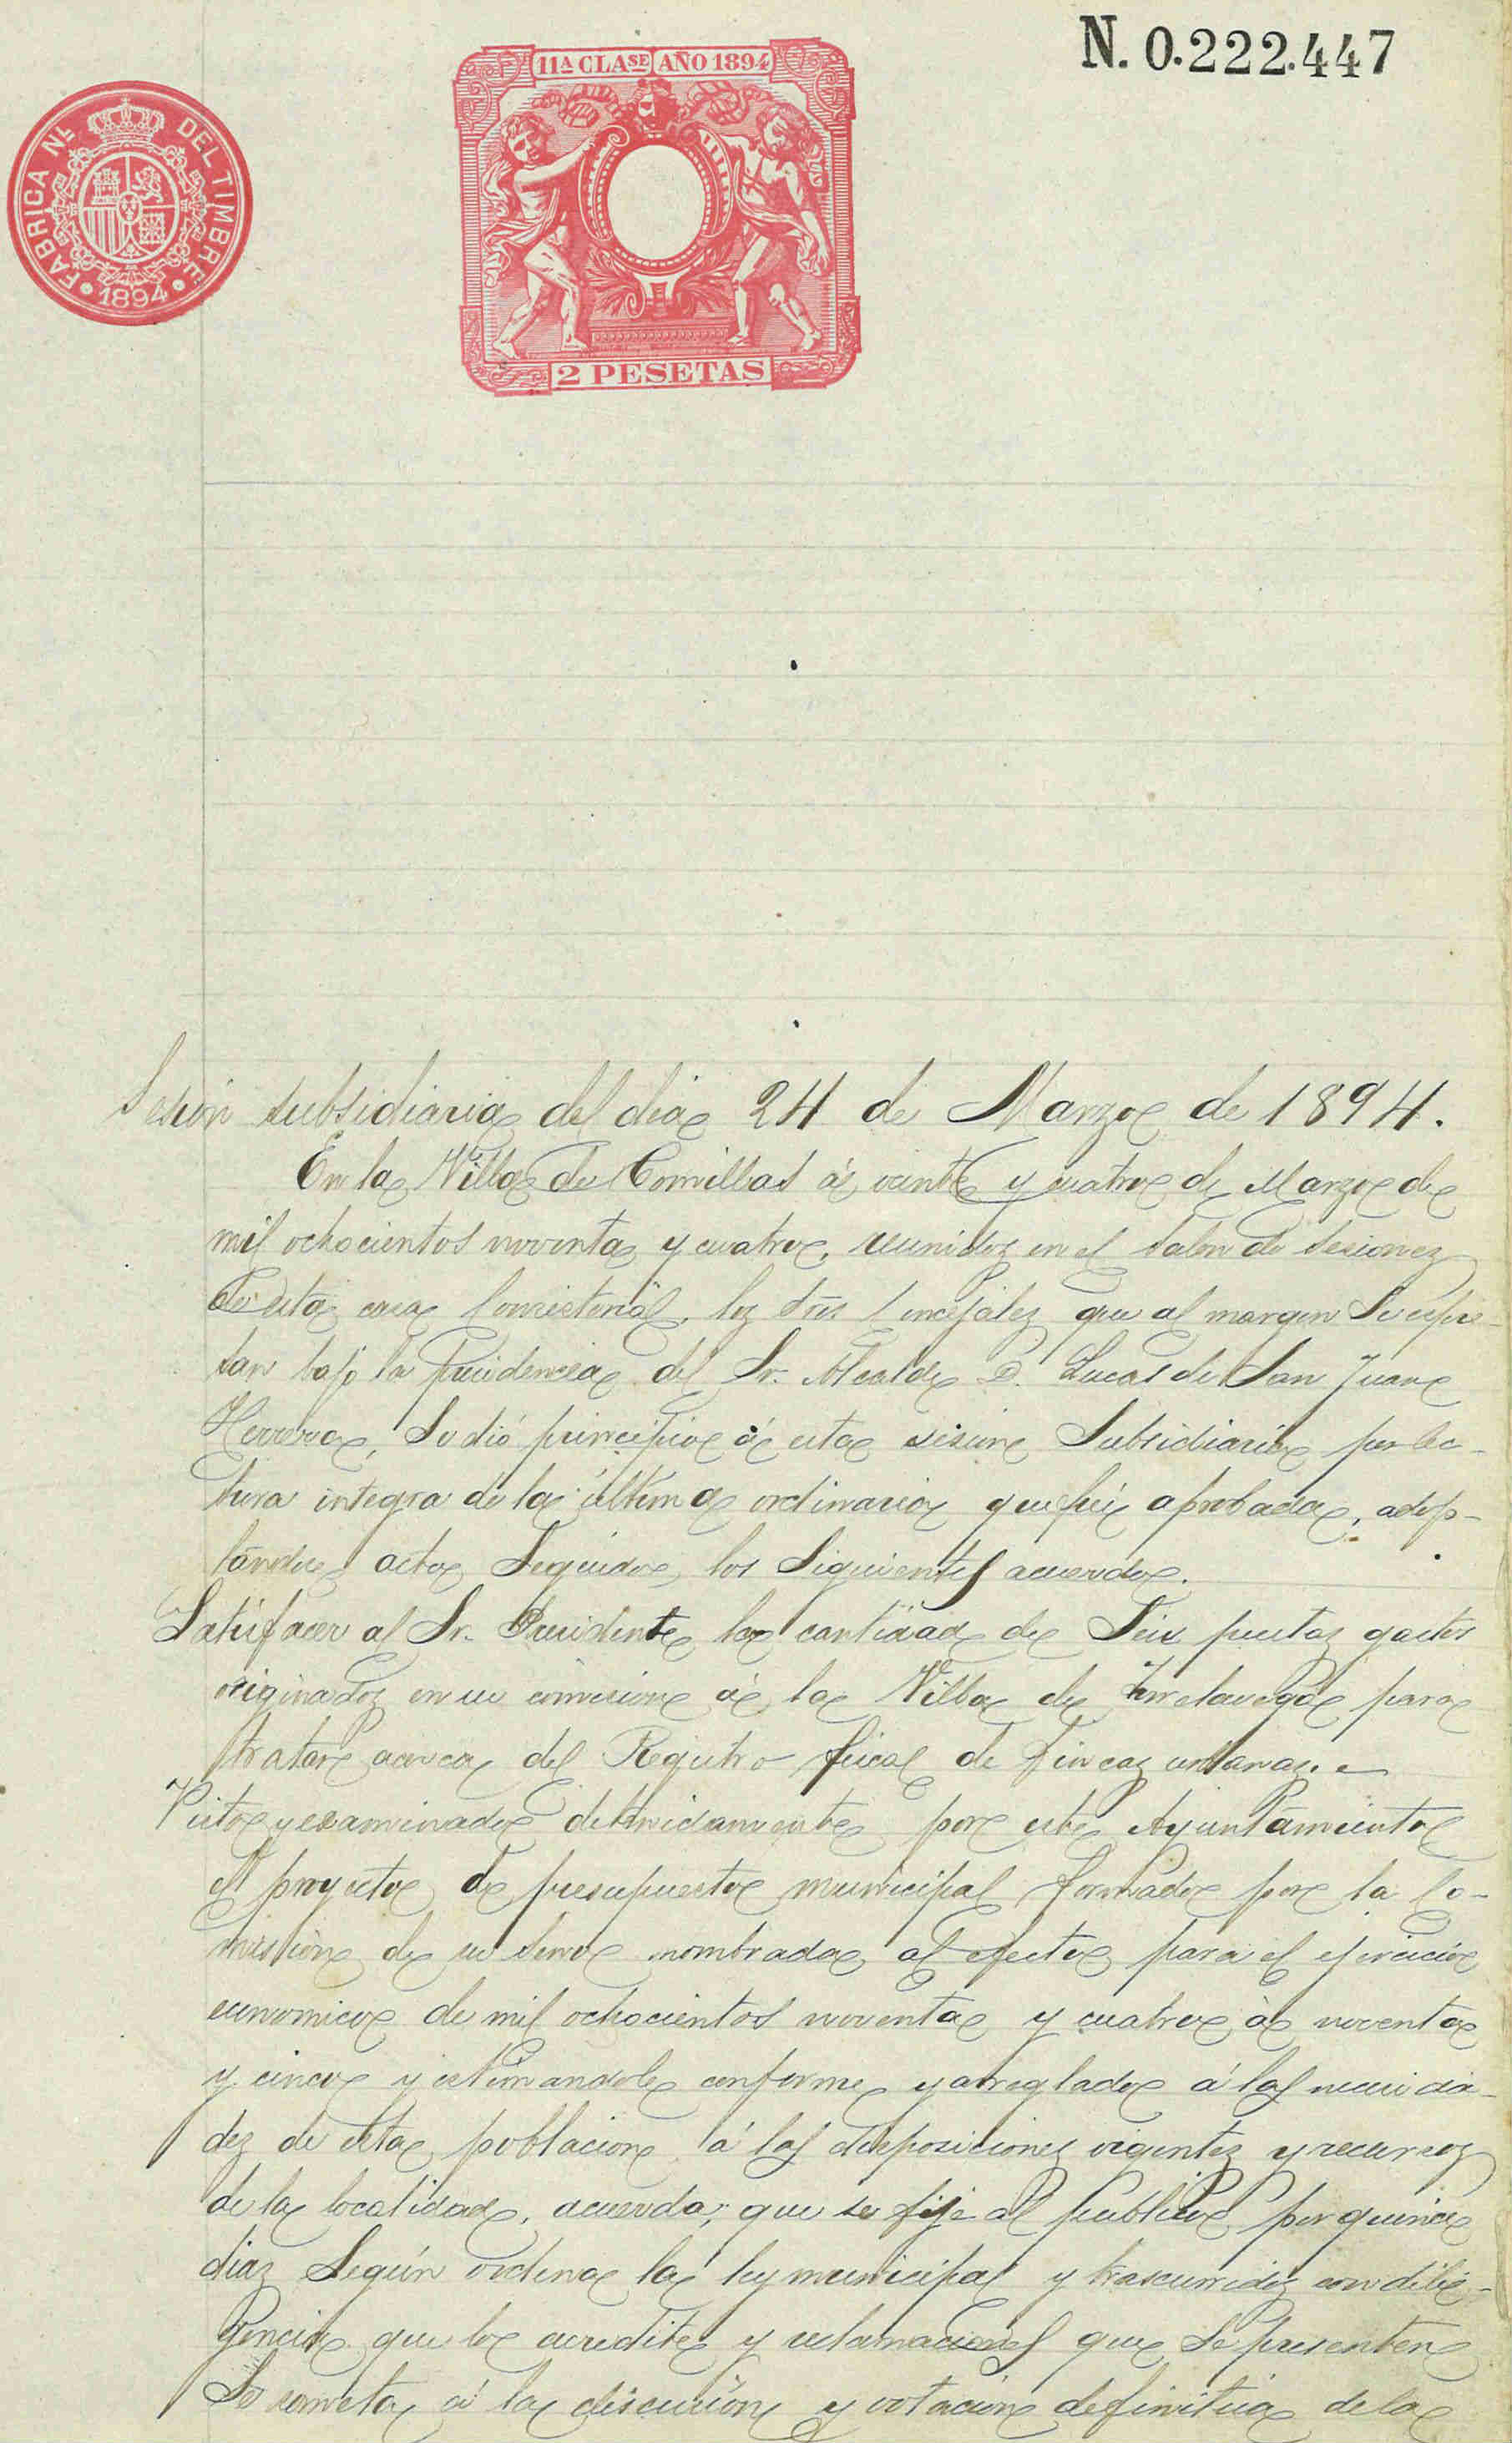 N. 0.222.447
11A CLASE AÑO 1894
FABRICA NL. DEL TIMBRE
1894
2 PESETAS
Sesión subsidiaria del dia 24 de Marzo de 1894.
En la Villa de Comillas á veinte y cuatro de Marzo de
mil ochocientos noventa y cuatro, reunidos en el salon de sesiones
de esta casa Consistorial, los Sres Concejales que al margen se espre-
san bajo la presidencia del Sr. Alcalde D. Lucas de San Juan
Herrera, se dió principio á esta sesion subsidiaria por lec-
tura integra de la última ordinaria que fué aprobada, adop-
tandose acto seguido los siguientes acuerdos.
Satisfacer al Sr. Presidente la cantidad de Seis pesetas gastos
originados en su comision á la Villa de Torrelavega para
tratar acerca del Registro fiscal de fincas urbanas.
Visto y examinado detenidamente por este Ayuntamiento
el proyecto de presupuesto municipal formado por la Co-
mision de su seno nombrada al efecto para el ejercicio
economico de mil ochocientos noventa y cuatro á noventa
y cinco y estimandole conforme y arreglado á las necesida-
des de esta poblacion á las disposiciones vigentes y recursos
de la localidad, acuerda; que se fije al publico por quince
dias según ordena la ley municipal y trascurridos con dili-
gencia que lo acredite y reclamaciones que se presenten
se someta á la discusión y votacion definitiva de la